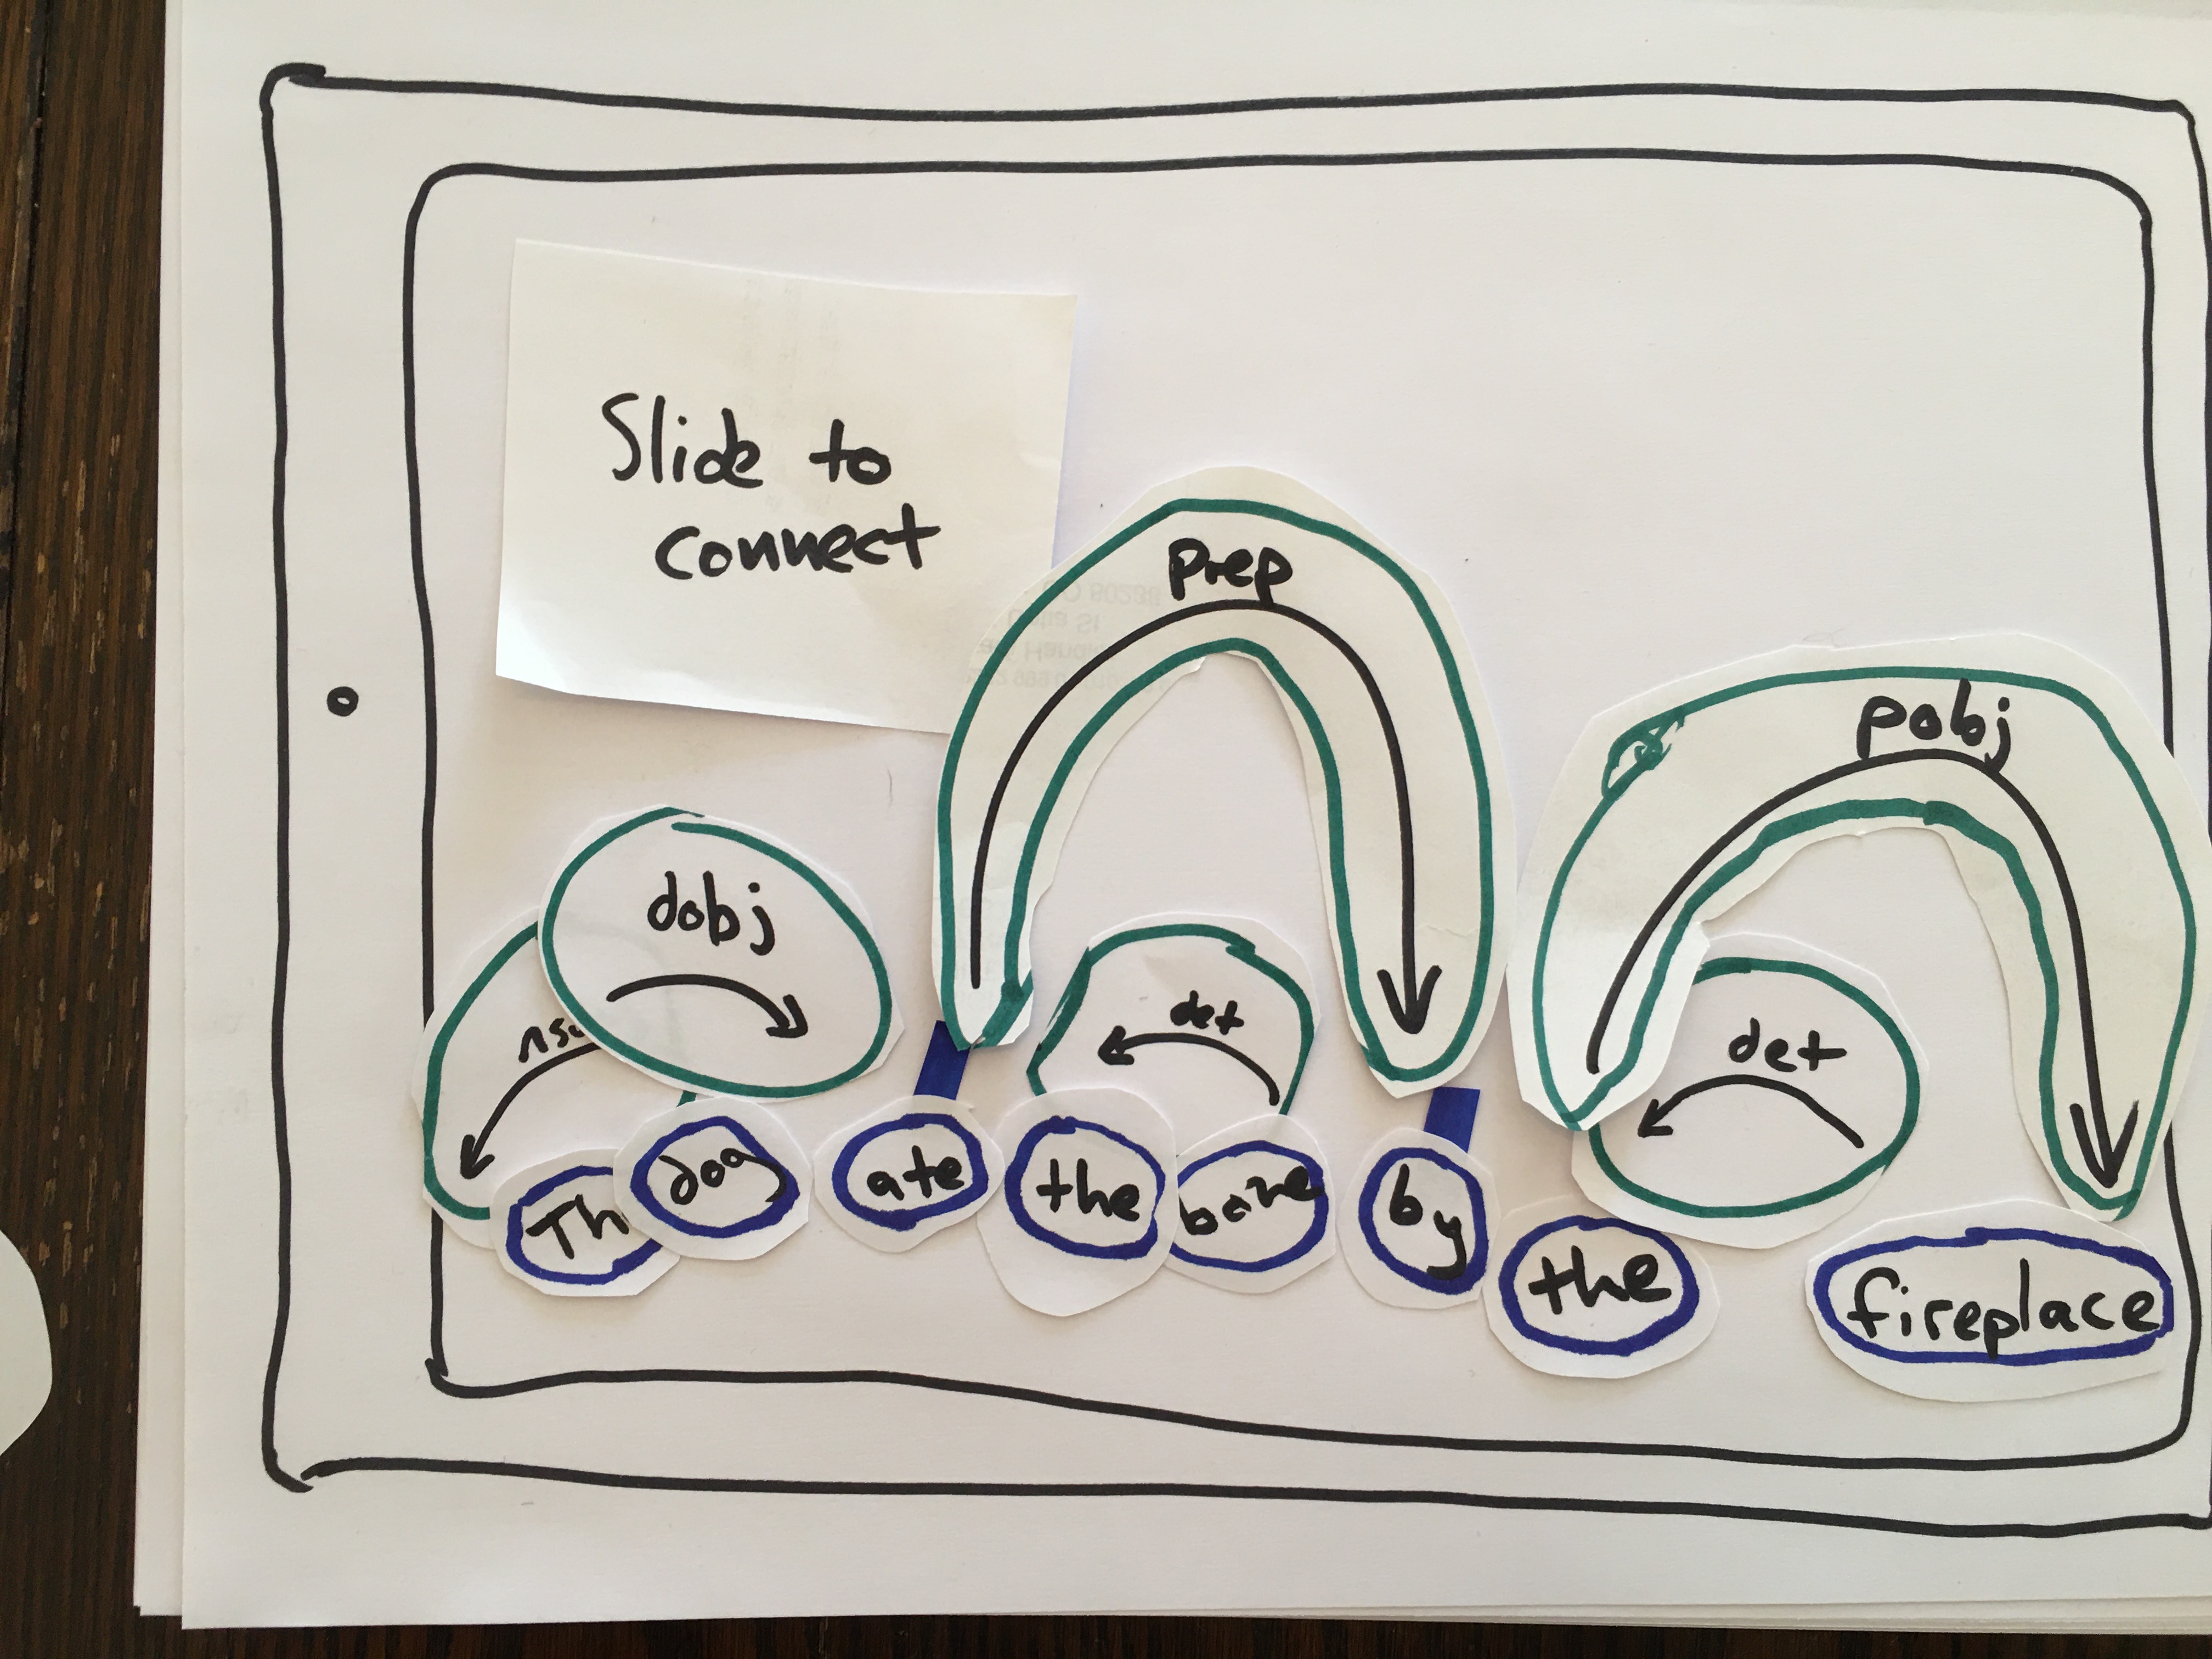 Slide to
connect
prep
pobj
dobj
nsu
det
det
Th dog ate the bone by the fireplace